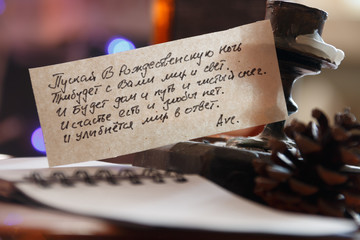 Пускай В Рождественскую ночь
Прибудет с Вами мир и свет.
И будет дом и путь и чистый снег.
И счастье есть и злобы нет.
И улыбнётся мир в ответ.
Avc.